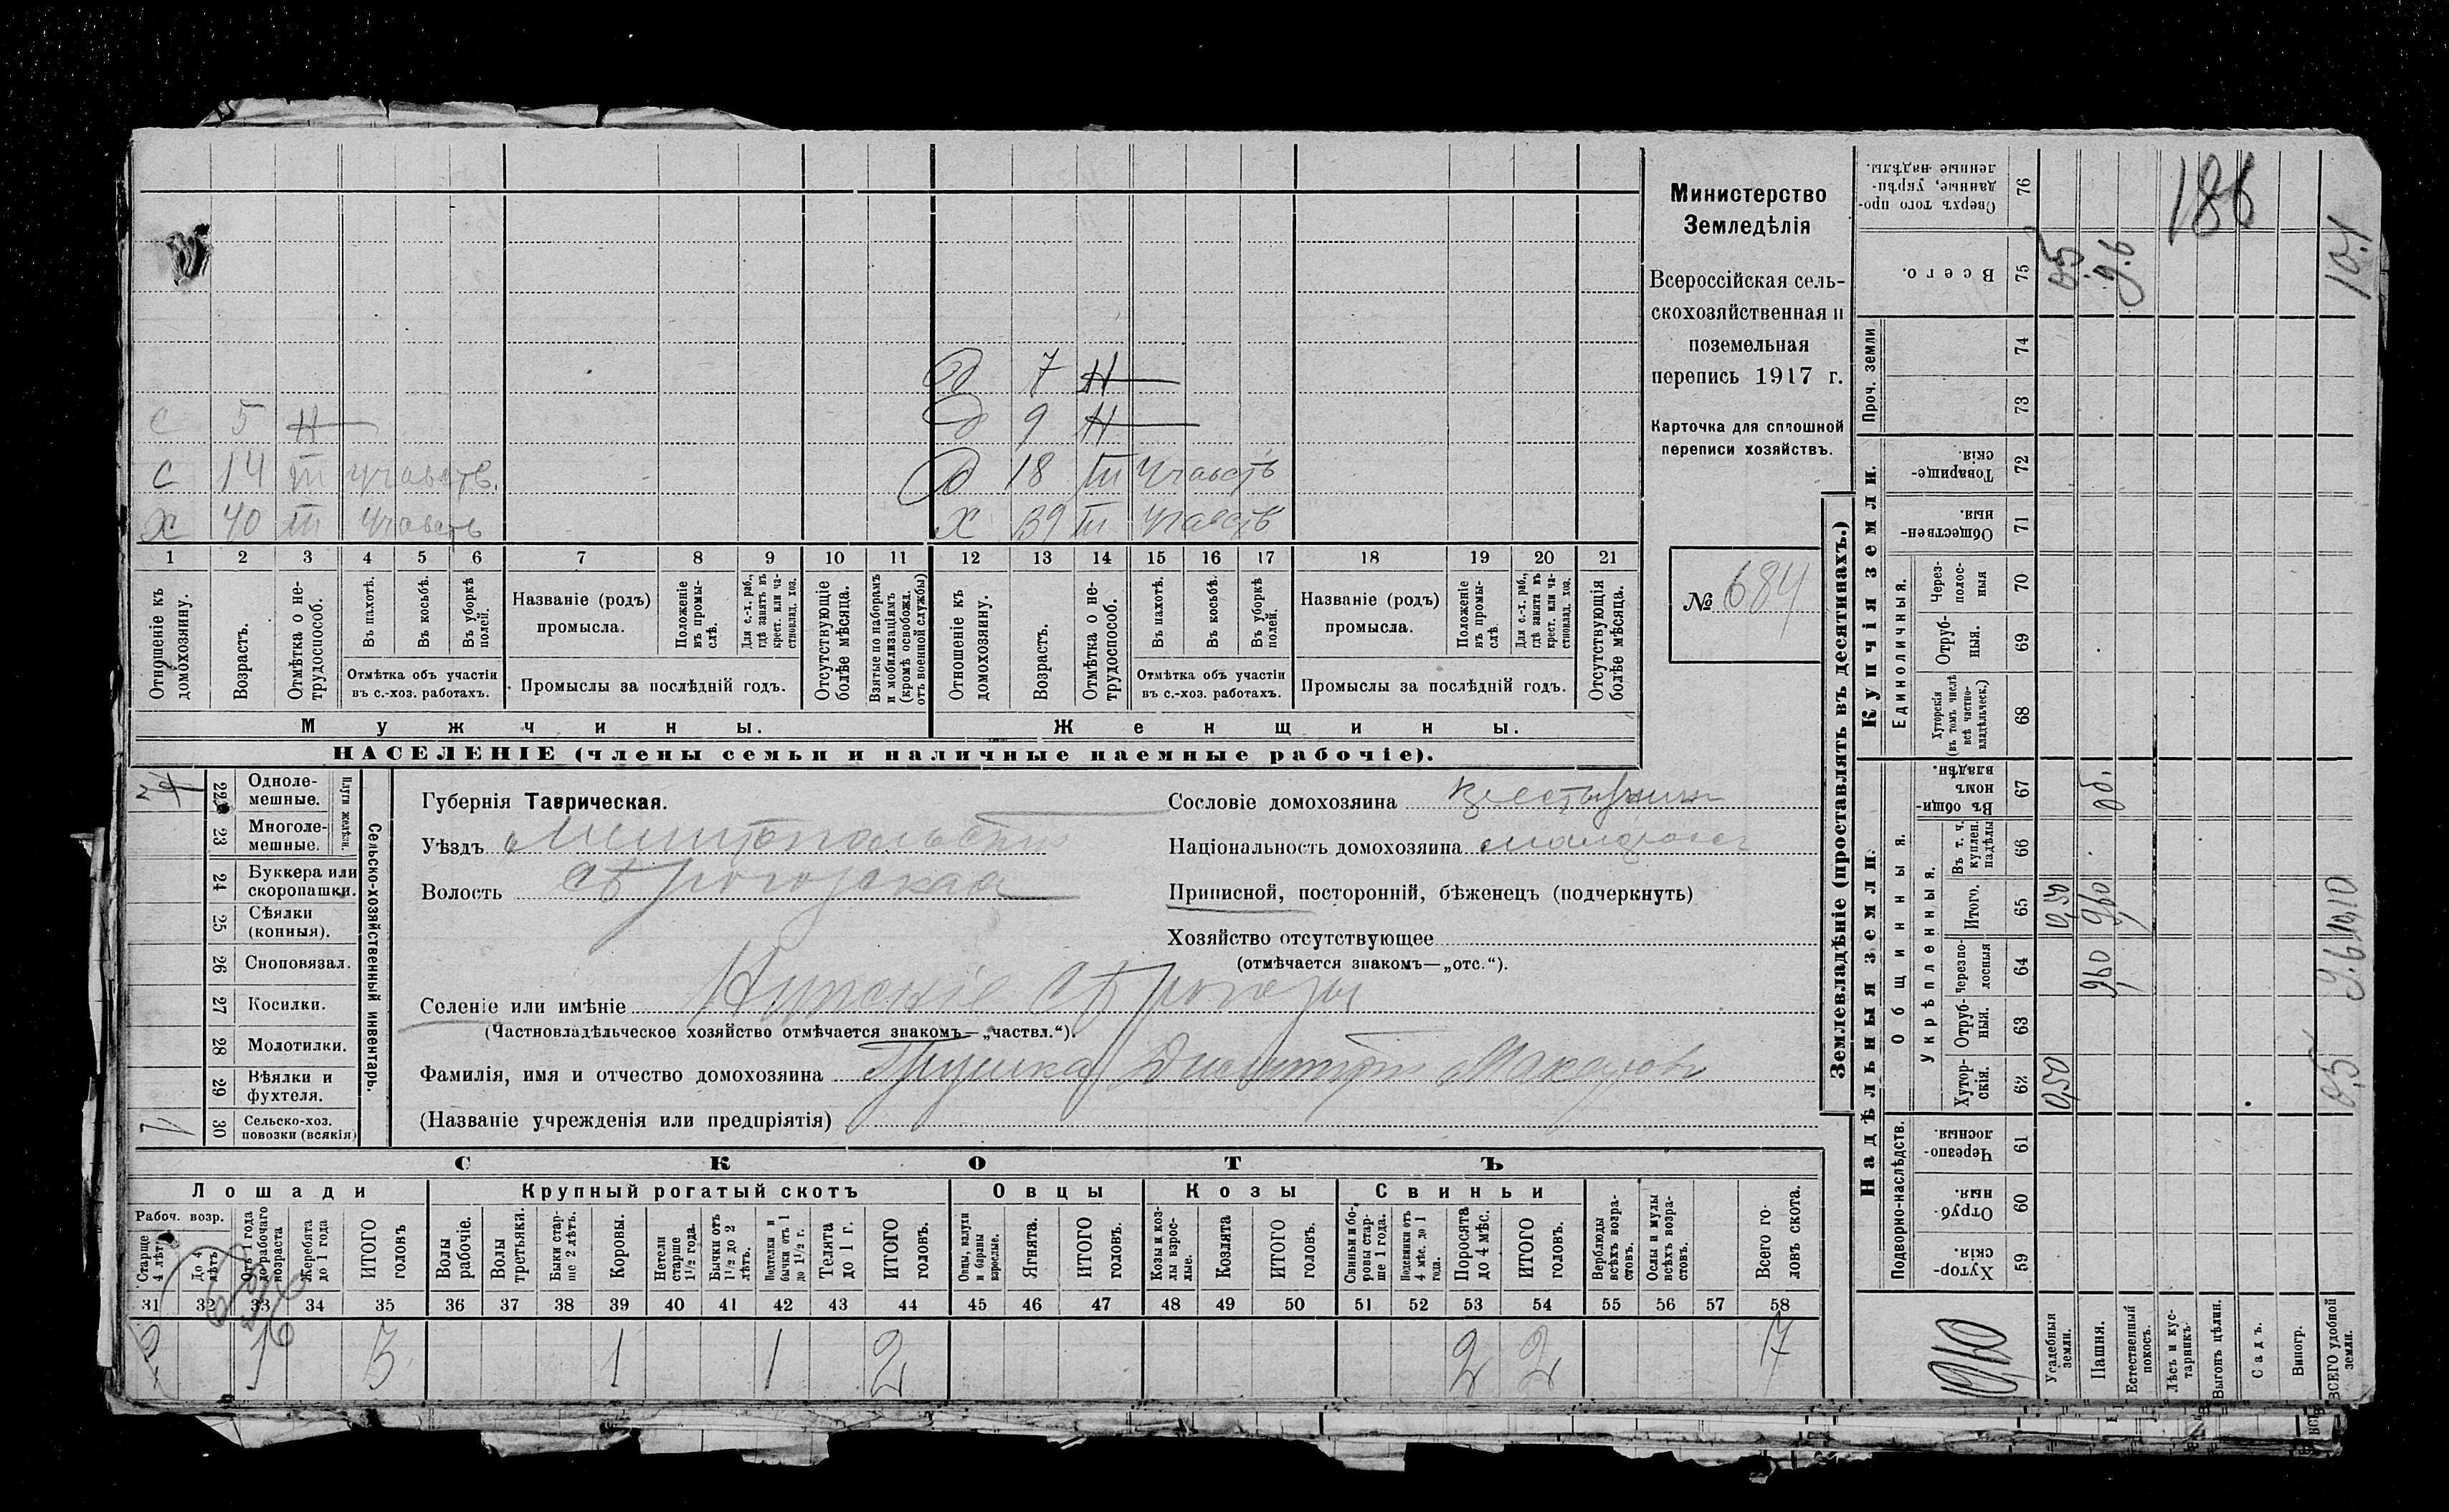 Министерство
Земледѣлія
Всероссійская сель-
скохозяйственная и
поземельная
перепись 1917 г.
Карточка для сплошной
переписи хозяйствъ.
№ 684
д 7 Н
с 5 Н
д 9 Н
с 14 Ш участв.
д 18 Ш участъ
х 40 Ш участъ
х 39 Ш участъ
1 2 3 4 5 6 7 8 9 10 11 12 13 14 15 16 17 18 19 20 21
Отношеніе къ домохозяину.
Возрастъ.
Отмѣтка о не-трудоспособ.
Въ пахотѣ.
Въ косьбѣ.
Въ уборкѣ полей.
Отмѣтка объ участіи
въ с.-хоз. работахъ.
Названіе (родъ)
промысла.
Положеніе въ промы-слѣ.
Для с.-х. раб., гдѣ занятъ въ крест. или ча-стновлад. хоз.
Промыслы за послѣдній годъ.
Отсутствующіе болѣе мѣсяца.
Взятые по наборамъ и мобилизаціямъ (кромѣ освобожд. отъ военной службы)
Отношеніе къ домохозяину.
Возрастъ.
Отмѣтка о не-трудоспособ.
Въ пахотѣ.
Въ косьбѣ.
Въ уборкѣ полей.
Отмѣтка объ участіи
въ с.-хоз. работахъ.
Названіе (родъ)
промысла.
Положеніе въ промы-слѣ.
Для с.-х. раб., гдѣ занята въ крест. или ча-стновлад. хоз.
Промыслы за послѣдній годъ.
Отсутствующія болѣе мѣсяца.
Мужчины.
Женщины.
НАСЕЛЕНІЕ (члены семьи и наличные наемные рабочіе).
Сельско-хозяйственный инвентарь.
Плуги желѣзн.
22 Одноле-мешные.
23 Многоле-мешные.
24 Буккера или скоропашки.
25 Сѣялки (конныя).
26 Сноповязал.
27 Косилки.
28 Молотилки.
29 Вѣялки и фухтеля.
30 Сельско-хоз. повозки (всякія) 1
Губернія Таврическая.
Уѣздъ Мелитопольскій
Волость Сѣрогозская
Селеніе или имѣніе Нижніе Сѣрогозы
(Частновладѣльческое хозяйство отмѣчается знакомъ—„частвл.“).
Фамилія, имя и отчество домохозяина Грушка Дмитрій Макаровъ
(Названіе учрежденія или предпріятія)
Сословіе домохозяина крестьянинъ
Національность домохозяина малороссъ
Приписной, посторонній, бѣженецъ (подчеркнуть)
Хозяйство отсутствующее
(отмѣчается знакомъ—„отс.“).
СКОТЪ
Лошади
Крупный рогатый скотъ
Овцы
Козы
Свиньи
Рабоч. возр.
Старше 4 лѣтъ
До 4 лѣтъ
Отъ 1 года до рабочаго возраста
Жеребята до 1 года
ИТОГО головъ
Волы рабочіе.
Волы третьяки.
Быки стар-ше 2 лѣтъ.
Коровы.
Нетели старше 1½ года.
Бычки отъ 1½ до 2 лѣтъ.
Подтелки и бычки отъ 1 до 1½ г.
Телята до 1 г.
ИТОГО головъ.
Овцы, валухи и бараны взрослые.
Ягнята.
ИТОГО головъ.
Козы и коз-лы взрос-лые.
Козлята
ИТОГО головъ.
Свиньи и бо-ровы стар-ше 1 года.
Подсвинки отъ 4 мѣс. до 1 года.
Поросята до 4 мѣс.
ИТОГО головъ.
Верблюды всѣхъ возра-стовъ.
Ослы и мулы всѣхъ возра-стовъ.
Всего го-ловъ скота.
31 32 33 34 35 36 37 38 39 40 41 42 43 44 45 46 47 48 49 50 51 52 53 54 55 56 57 58
1 3 1 1 2 2 2 7
Землевладѣніе (проставлять въ десятинахъ.)
Надѣльныя земли.
Купчія земли.
Проч. земли
Подворно-наслѣдств.
Общинныя.
Укрѣпленныя.
Единоличныя.
Хутор-скія. 59
Отруб-ныя. 60
Черезпо-лосныя. 61
Хутор-скія. 62
Отруб-ныя. 63
Черезпо-лосныя 64
Итого. 65
Въ т. ч. куплен. надѣлы 66
Въ общи-номъ владѣн. 67
Хуторскія (въ томъ числѣ всѣ частно-владѣльческ.) 68
Отруб-ныя. 69
Через-полос-ныя 70
Обществен-ныя. 71
Товарище-скія. 72
73
74
Всего. 75
Сверхъ того про-данные, укрѣп-ленные надѣлы. 76
Усадебныя земли. 0,50 0,50 0,5
Пашня. 9,60 9,60 9.6
Естественный покосъ.
Лѣсъ и кус-тарникъ.
Выгонъ цѣлин.
Садъ.
Виногр.
ВСЕГО удобной земли. 0,5 9,6 10,10 10.1
186